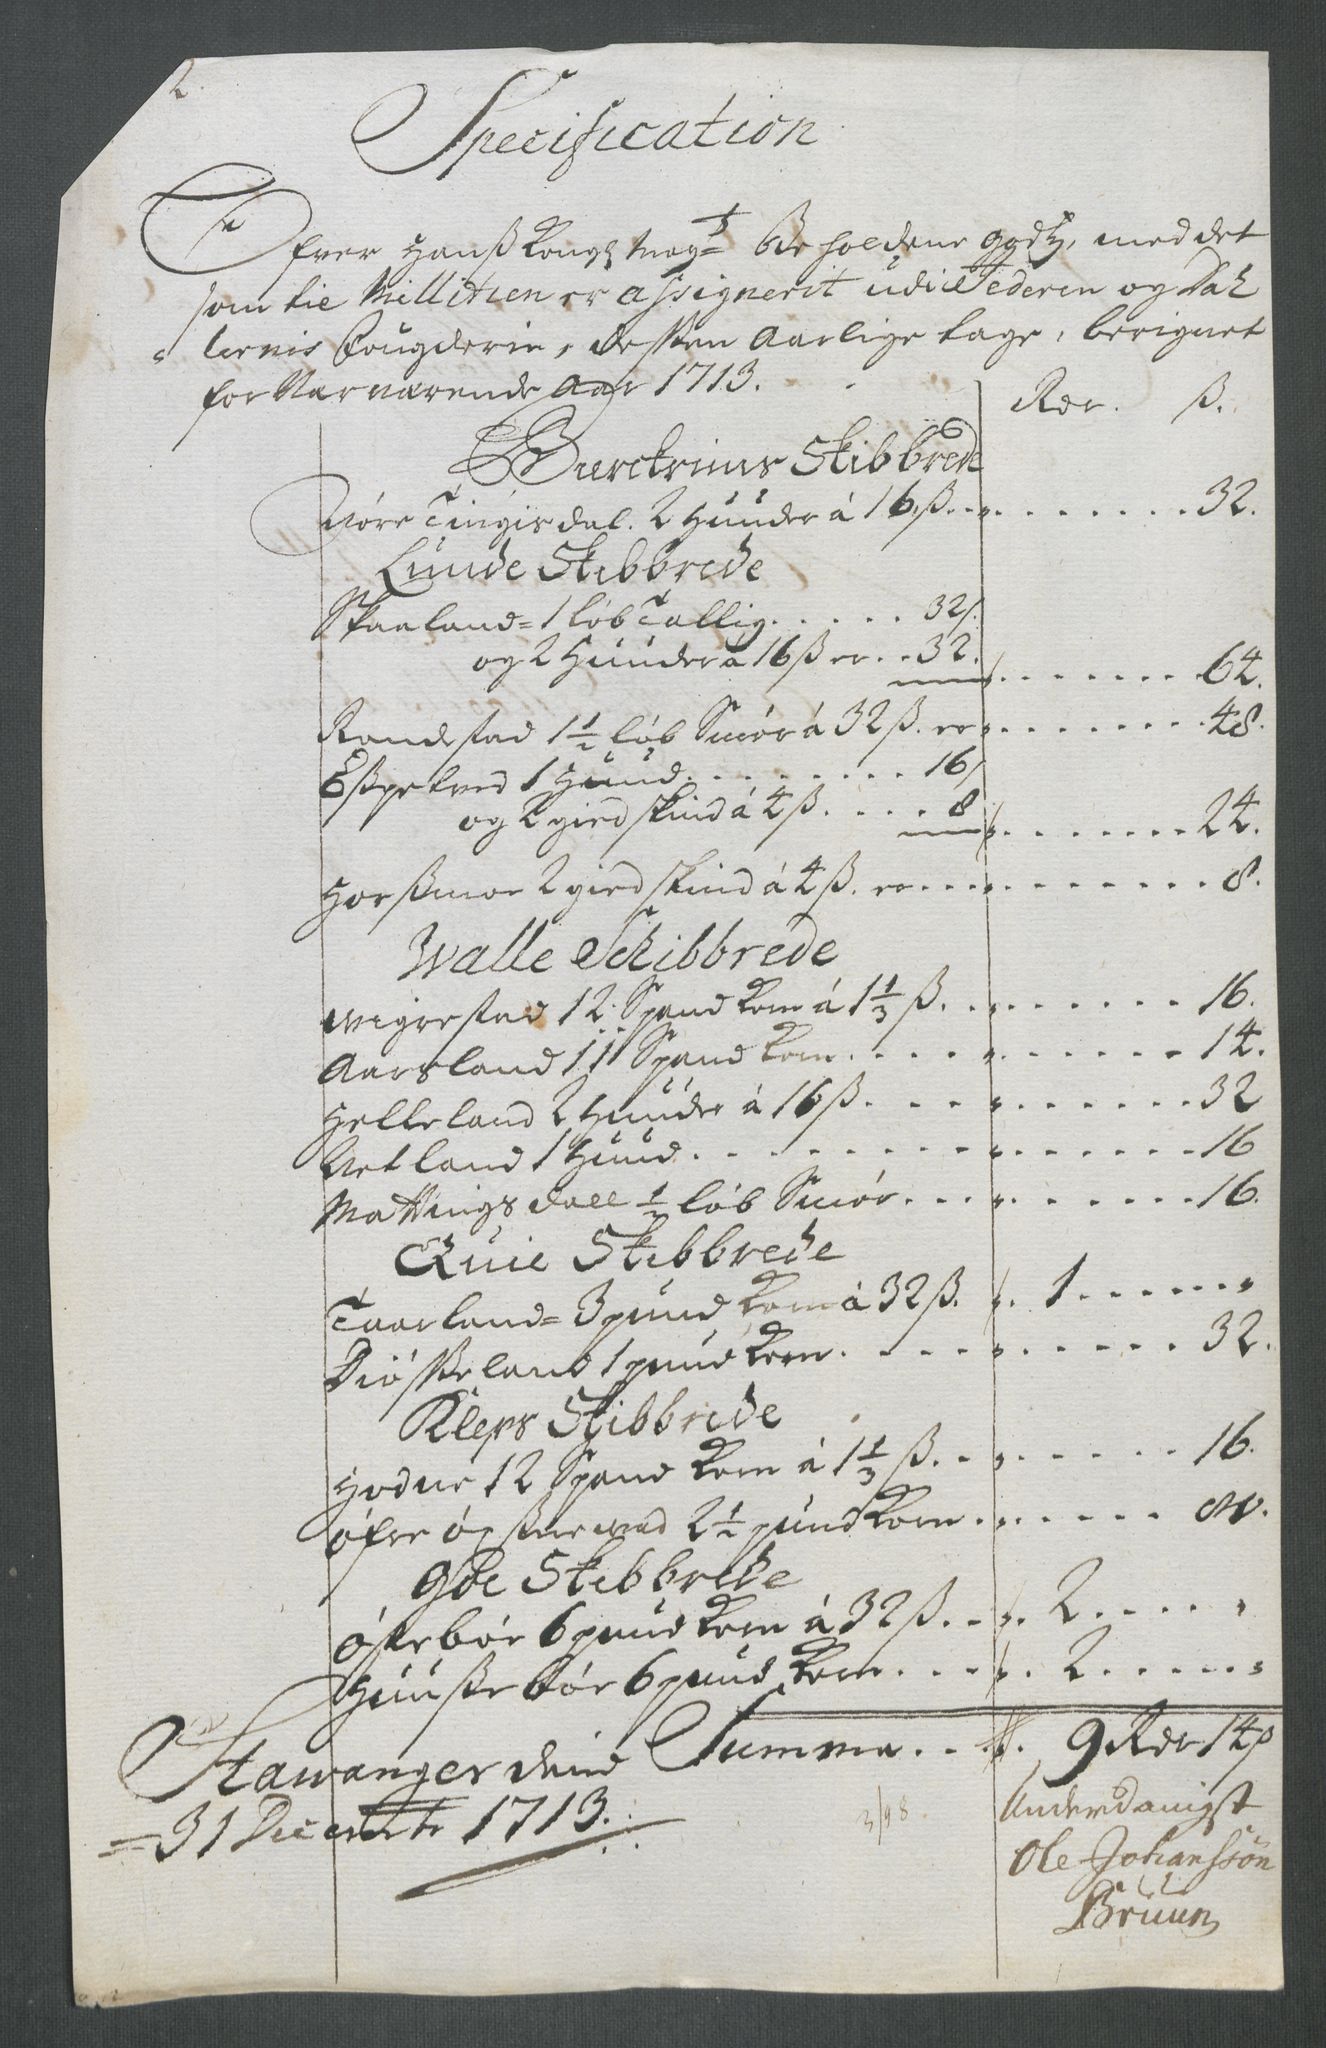 2.
Specification
Ofver Hanß Kongl. May:ts beholdene godtz, med det
som til Millitien er assignerit udi Jederen og Dah
lernis Fougderie, desßen Aarlige tage, berignet
for Nærværende Aar 1713.
Rdr. ß.
Burckrims Skibbrede
Nöre Tingisdal. 2 Huuder á 16 ß. . . . 32.
Lunde Skibbrede
Skaaland = 1 løb Tallig . . . . . 32/
og 2 Huuder á 16 ß er . . 32. . . . 64.
Rondestad 1½ løb Smör á 32 ß. er . . . 48.
Eßpetved 1 Huud . . . . . . 16/
og 2 gied skind á 4 ß . . . . 8 . . . 24.
Horßmoe 2 gied skind á 4 ß. er . . . 8.
Walle Schibbrede
Wigrestad 12. Spand Korn á 1⅓ ß. . . . 16.
Aarsland 11 Spand Korn . . . . 14.
Helleland 2 Huuder á 16 ß. . . . 32
Netland 1 Huud . . . . 16
Mattingsdall ½ løb Smör . . . . 16.
Quie Skibbrede
Taarland = 3 pund Korn á 32 ß. . . 1 . . . "
Diösseland 1 pund Korn . . . . 32.
Kleps Skibbrede
Hodne 12 Spand Korn á 1⅓ ß. . . . 16.
öfre öpstvad 2½ pund Korn . . . . 80.
Goe Skibbrede
östebör 6 pund Korn á 32 ß. . . 2 . . . "
Huußebör 6 pund Korn . . . . 2 . . . "
Summa . . . 9 Rdr 14 ß
Stawanger dend
31 Decembr 1713.
3/98
Underdanigst
Ole Johanssön
Bruun